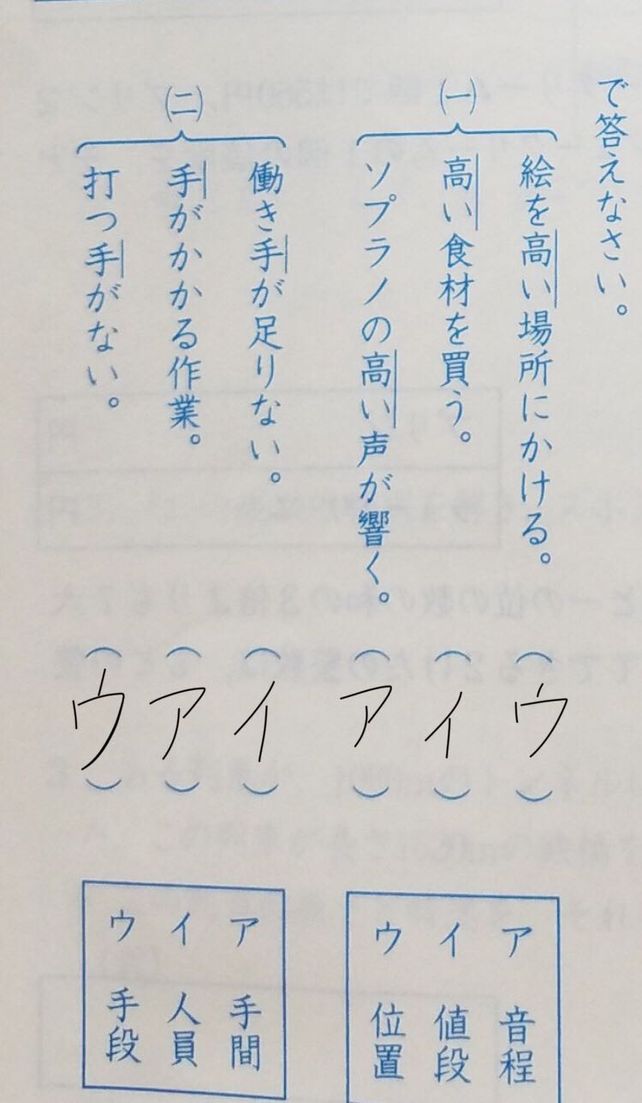 で答えなさい。
㈠
絵を高い場所にかける。（ウ）
高い食材を買う。（イ）
ソプラノの高い声が響く。（ア）
ア　音程
イ　値段
ウ　位置
㈡
働き手が足りない。（イ）
手がかかる作業。（ア）
打つ手がない。（ウ）
ア　手間
イ　人員
ウ　手段